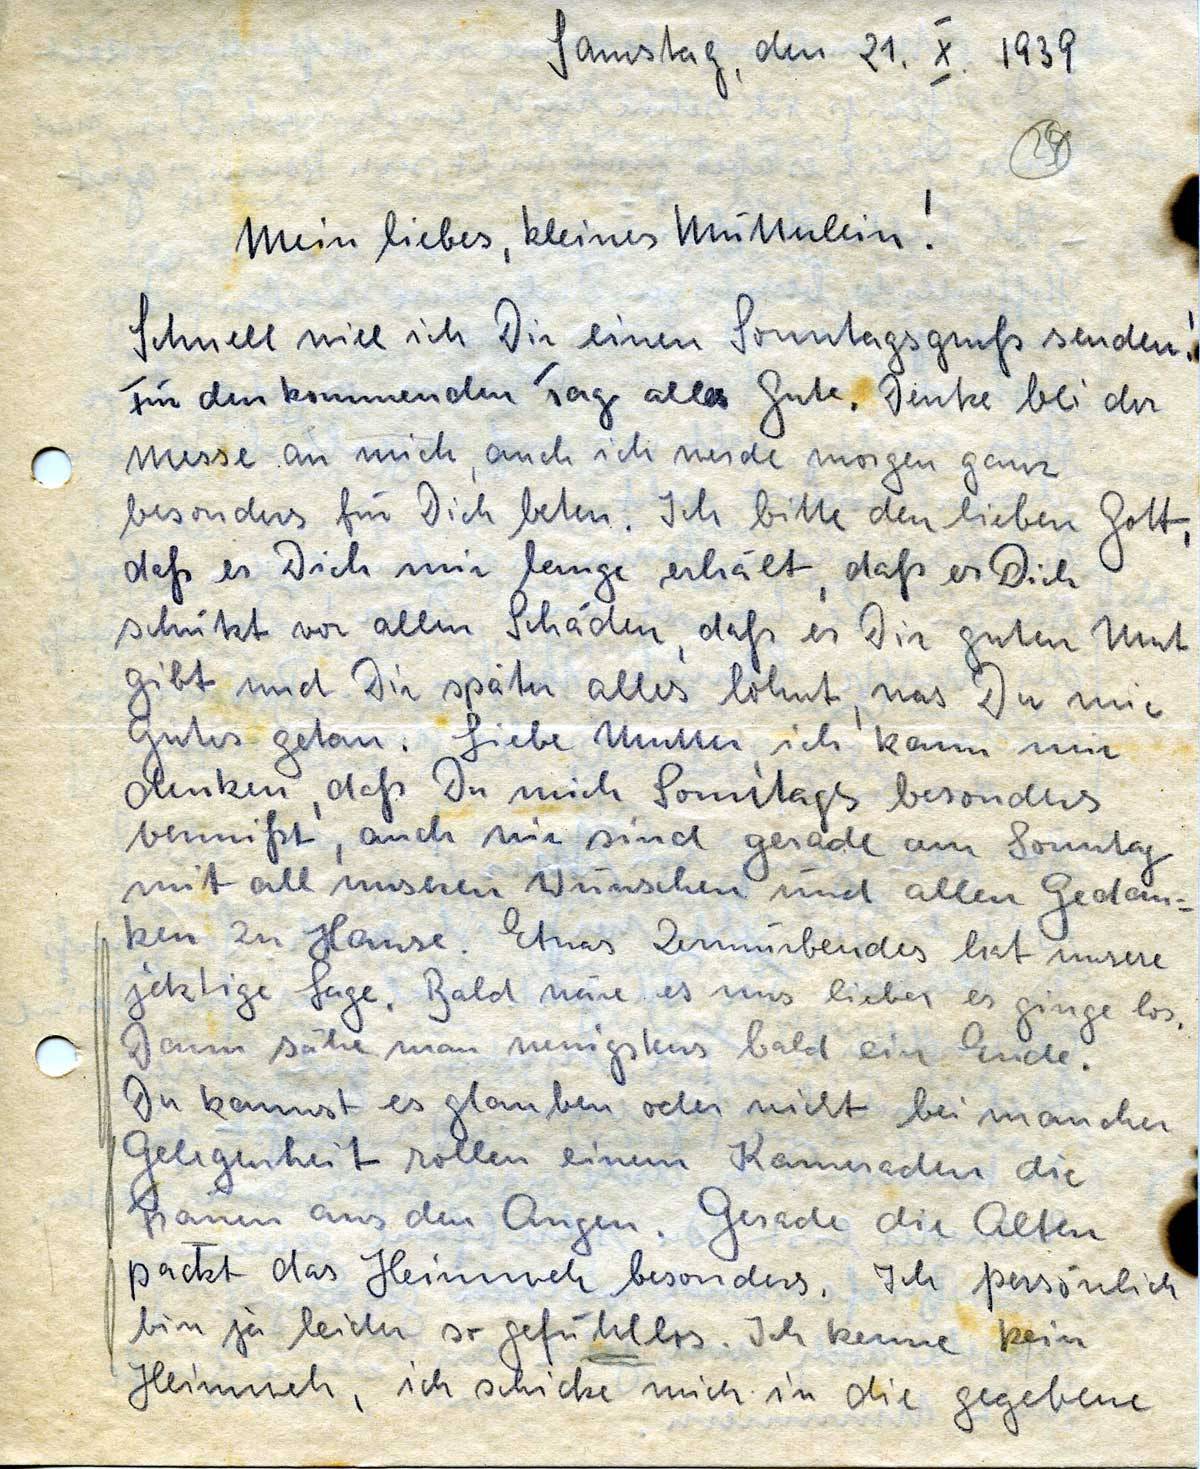 Samstag, den 21. X. 1939
Mein liebes, kleines Mütterlein!
Schnell will ich Dir einen Sonntagsgruß senden!
Für den kommenden Tag alles Gute. Denke bei der
Messe an mich, auch ich werde morgen ganz
besonders für Dich beten. Ich bitte den lieben Gott,
daß er Dich mir lange erhält, daß er Dich
schützt vor allen Schäden, daß er Dir guten Mut
gibt und Dir später alles lohnt, was Du mir
Gutes getan. Liebe Mutter, ich kann mir
denken, daß Du mich Sonntags besonders
vermißt, auch wir sind gerade am Sonntag
mit all unseren Wünschen und allen Gedan=
ken zu Hause. Etwas Zermürbendes hat unsere
jetztige Lage. Bald wäre es uns lieber es ginge los.
Dann sähe man wenigstens bald ein Ende.
Du kannst es glauben oder nicht bei mancher
Gelegenheit rollen einem Kameraden die
Tränen aus den Augen. Gerade die Alten
packt das Heimweh besonders. Ich persönlich
bin ja leider so gefühllos. Ich kenne kein
Heimweh, ich schicke mich in die gegebene